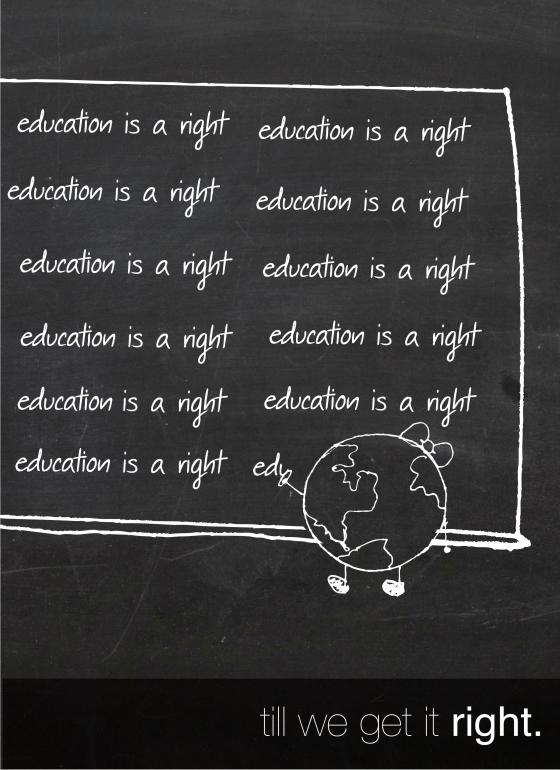 education is a right education is a right
education is a right education is a right
education is a right education is a right
education is a right education is a right
education is a right education is a right
education is a right edu
till we get it right.